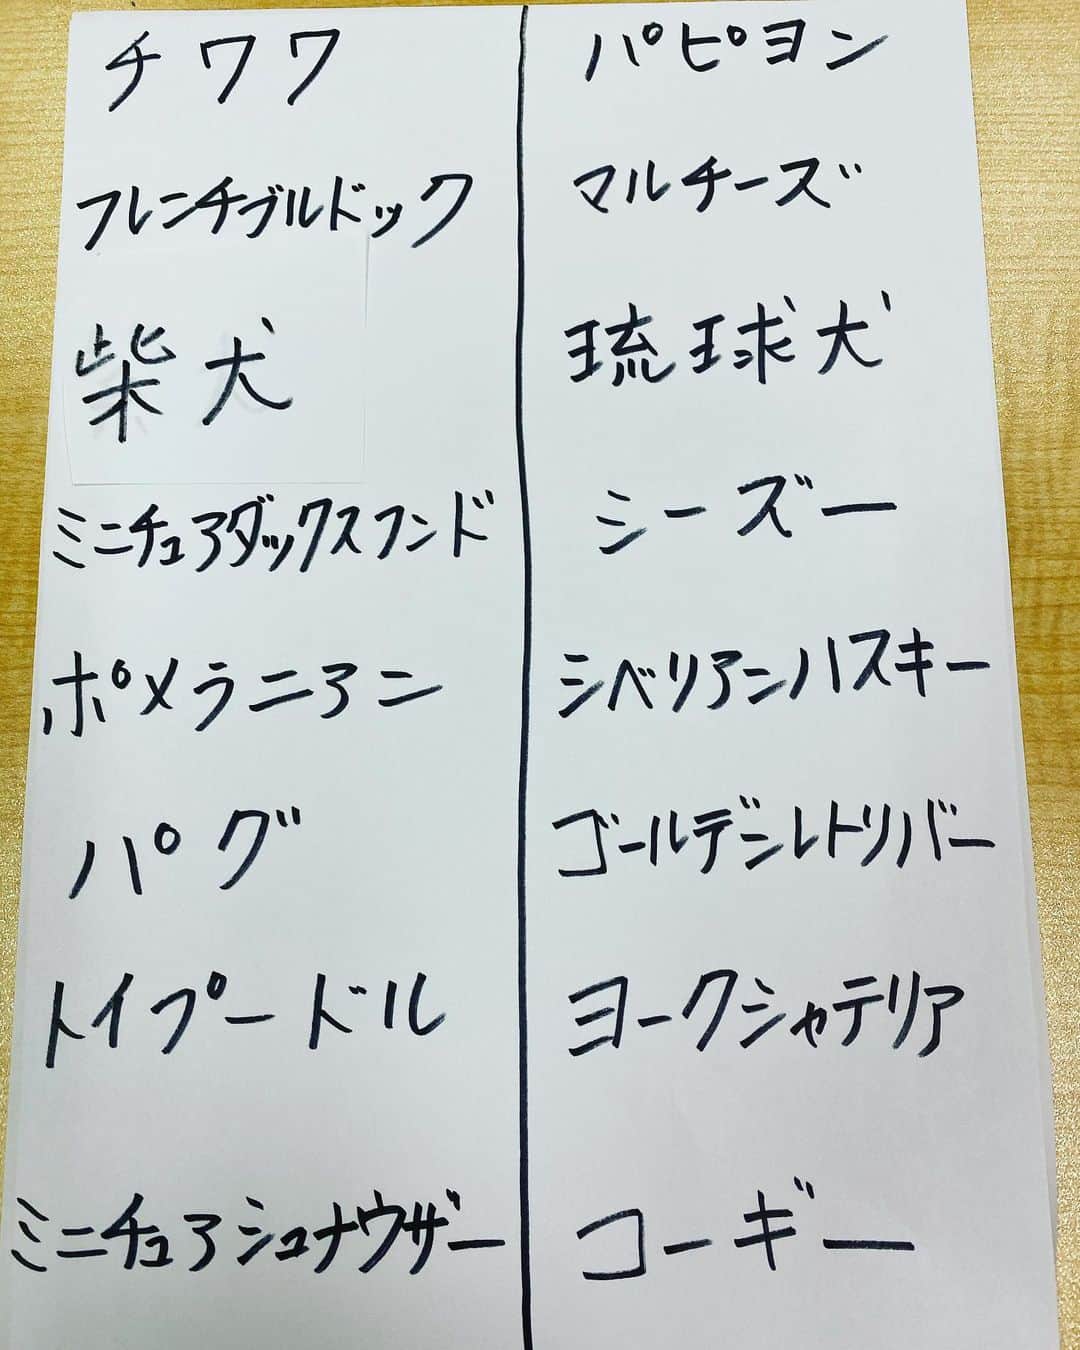 チワワ
フレンチブルドック
柴犬
ミニチュアダックスフンド
ポメラニアン
パグ
トイプードル
ミニチュアシュナウザー
パピヨン
マルチーズ
琉球犬
シーズー
シベリアンハスキー
ゴールデンレトリバー
ヨークシャテリア
コーギー